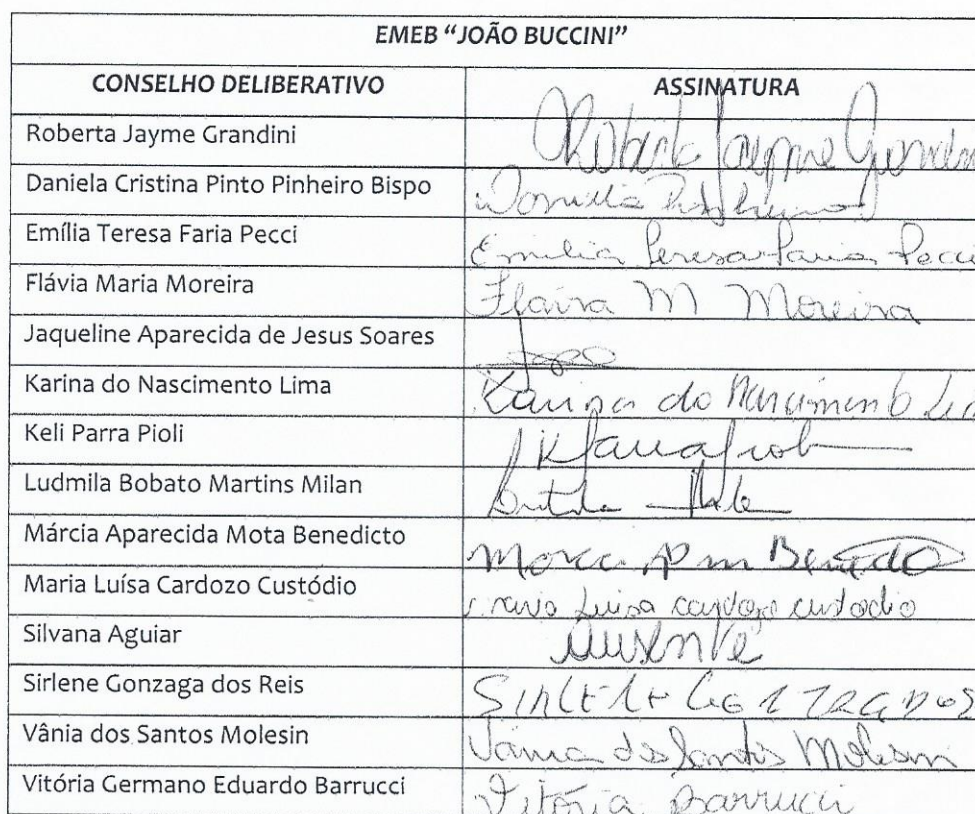 EMEB “JOÃO BUCCINI”
CONSELHO DELIBERATIVO ASSINATURA
Roberta Jayme Grandini Roberta Jayme
Daniela Cristina Pinto Pinheiro Bispo
Emília Teresa Faria Pecci Emilia Teresa Faria Pecci
Flávia Maria Moreira Flavia M Moreira
Jaqueline Aparecida de Jesus Soares
Karina do Nascimento Lima Karina do Nascimento
Keli Parra Pioli
Ludmila Bobato Martins Milan
Márcia Aparecida Mota Benedicto
Maria Luísa Cardozo Custódio Luisa cardozo custodio
Silvana Aguiar Ausente
Sirlene Gonzaga dos Reis
Vânia dos Santos Molesin Vânia dos Santos Molesin
Vitória Germano Eduardo Barrucci Vitória Barrucci